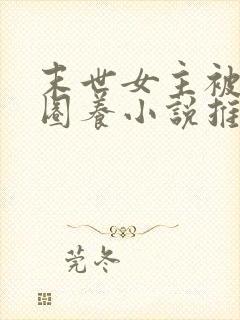 末世女主被
圈养小说推
莞冬